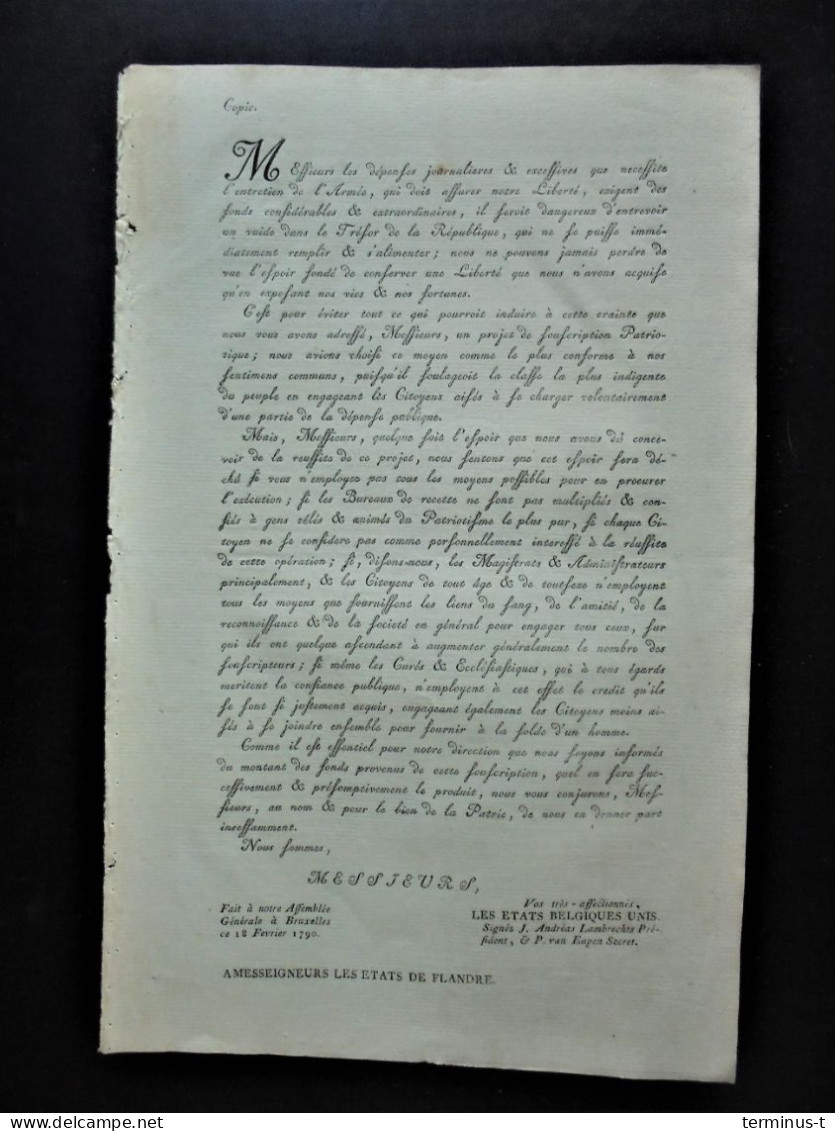 Copie.
MEſſieurs les dépenſes journalieres & exceſſives que neceſſite
l'entretien de l'Armée, qui doit aſſurer notre Liberté, exigent des
fonds conſidérables & extraordinaires, il ſeroit dangereux d'entrevoir
un vuide dans le Tréſor de la République, qui ne ſe puiſſe immé-
diatement remplir & s'alimenter; nous ne pouvons jamais perdre de
vue l'eſpoir fondé de conſerver une Liberté que nous n'avons acquiſe
qu'en expoſant nos vies & nos fortunes.
C'eſt pour éviter tout ce qui pourroit induire à cette crainte que
nous vous avons adreſſé, Meſſieurs, un projet de ſouſcription Patrio-
tique; nous avions choiſi ce moyen comme le plus conforme à nos
ſentimens communs, puiſqu'il ſoulageoit la claſſe la plus indigente
du peuple en engageant les Citoyens aiſés à ſe charger volontairement
d'une partie de la dépenſe publique.
Mais, Meſſieurs, quelque ſoit l'eſpoir que nous avons dû conce-
voir de la reuſſite de ce projet, nous ſentons que cet eſpoir ſera dé-
çhû ſi vous n'employez pas tous les moyens poſſibles pour en procurer
l'exécution; ſi les Bureaux de recette ne ſont pas multipliés & con-
fiés à gens zélés & animés du Patriotiſme le plus pur, ſi chaque Ci-
toyen ne ſe conſidere pas comme perſonnellement intereſſé à la réuſſite
de cette opération; ſi, diſons-nous, les Magiſtrats & Adminiſtrateurs
principalement, & les Citoyens de tout âge & de toutſexe n'employent
tous les moyens que fourniſſent les liens du ſang, de l'amitié, de la
reconnoiſſance & de la Societé en général pour engager tous ceux, ſur
qui ils ont quelque aſcendant à augmenter généralement le nombre des
ſouſcripteurs; ſi même les Curés & Eccléſiaſtiques, qui à tous égards
meritent la confiance publique, n'employent à cet effet le credit qu'ils
ſe ſont ſi juſtement acquis, engageant également les Citoyens moins ai-
ſés à ſe joindre enſemble pour fournir à la ſolde d'un homme.
Comme il eſt eſſentiel pour notre direction que nous ſoyons informés
du montant des fonds provenus de cette ſouſcription, quel en ſera ſuc-
ceſſivement & préſomptivement le produit, nous vous conjurons, Meſ-
ſieurs, au nom & pour le bien de la Patrie, de nous en donner part
inceſſamment.
Nous ſommes,
MESSIEURS,
Vos très-affectionnés,
LES ETATS BELGIQUES UNIS.
Signés J. Andréas Lambrechts Pré-
ſident, & P. van Eupen Secret.
Fait à notre Aſſemblée
Générale à Bruxelles
ce 18 Fevrier 1790.
AMESSEIGNEURS LES ETATS DE FLANDRE.
terminus-t